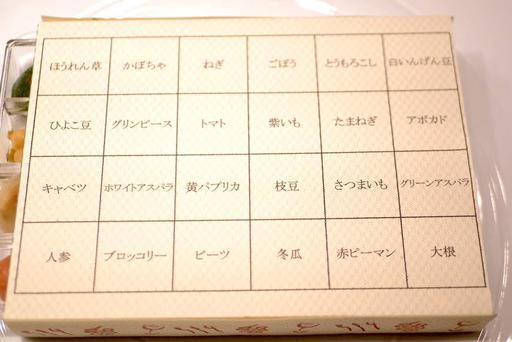 ほうれん草 かぼちゃ ねぎ ごぼう とうもろこし 白いんげん豆
ひよこ豆 グリンピース トマト 紫いも たまねぎ アボカド
キャベツ ホワイトアスパラ 黄パプリカ 枝豆 さつまいも グリーンアスパラ
人参 ブロッコリー ビーツ 冬瓜 赤ピーマン 大根